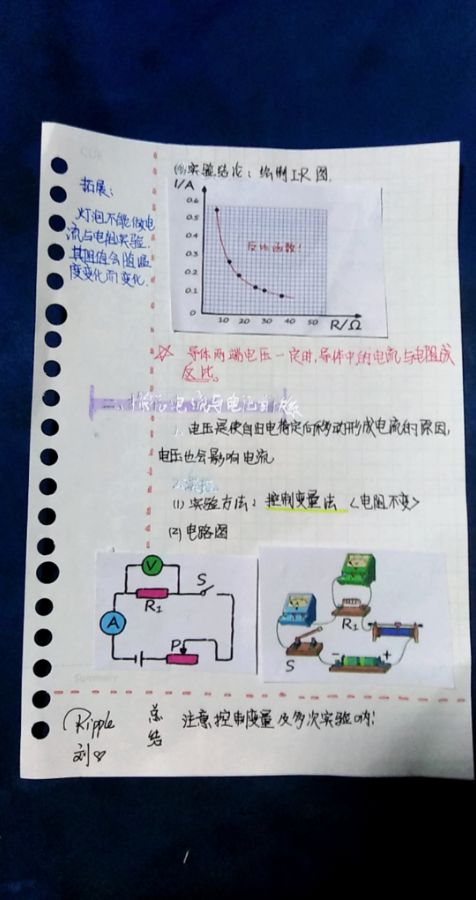 拓展：
灯泡不能做电
流与电阻实验.
其阻值会随温
度变化而变化.
实验结论：绘制I-R图.
I/A
0.6
0.5
0.4
0.3
0.2
0.1
0
反比函数!
10 20 30 40 50
R/Ω
☆ 导体两端电压一定时,导体中的电流与电阻成
反比。
二、探究电流与电压的关系
1. 电压是使自由电荷定向移动形成电流的原因,
电压也会影响电流
(1) 实验方法：控制变量法 <电阻不变>
(2) 电路图
V
R1
S
A
P
R1
S
- +
Summary
Ripple
刘♡
总结
注意控制变量及多次实验哟!